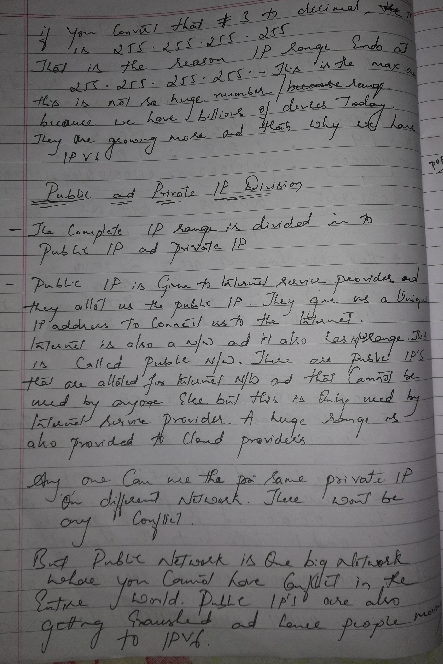 if you convert that # 3 to decimal
is 255.255.255.255
That is the reason IP range Ends at
255.255.255.255. This is the max
this is not so huge number / range
because we have billions of devices Today.
They are growing more and thats why we have
IPV6
Public and Private IP Division
- The Complete IP range is divided in to
Public IP ad private IP
- Public IP is Given to Internet service providers and
they allot us the public IP. They give us a Unique
IP address To Connect us to the Internet.
Internet is also a N/W ad it also has IP range. This
is Called Public N/W. There are Public IP'S
that are alloted for Internet N/W ad that Cannot be
used by anyone Else but this is Only used by
Internet Service Provider. A huge range is
also provided to Cloud providers
Any one Can use the same private IP
On different Network. There wont be
any Conflict.
But Public Network is One big Network
where you Cannot have Conflict in the
Entire World. Public IP'S are also
getting Exausted ad hence people
to IPV6.